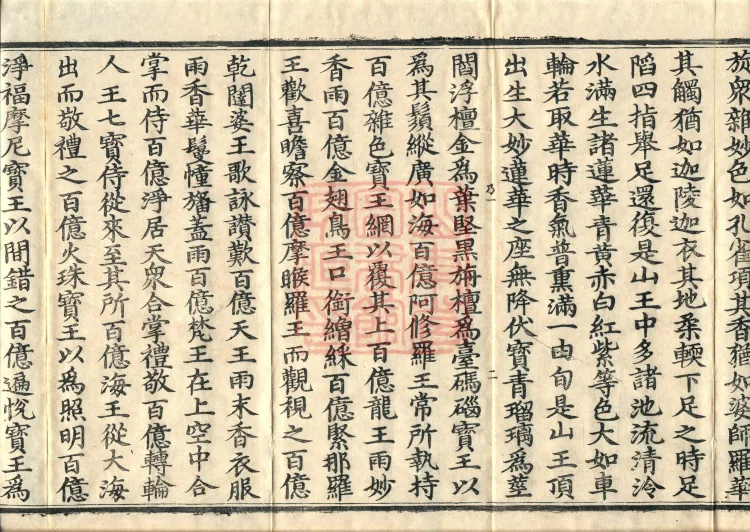 旋衆雜妙色如孔雀項其香猶如婆師羅華
其觸猶如迦陵迦衣其地柔輭下足之時足
䧟四指舉足還復是山王中多諸池流清泠
水滿生諸蓮華青黄赤白紅紫等色大如車
輪若取華時香氣普熏滿一由旬是山王頂
出生大妙蓮華之座無降伏寶青瑠璃爲莖
閻浮檀金爲葉堅黒栴檀爲臺碼碯寶王以
爲其鬚縱廣如海百億阿修羅王常所執持
百億雜色寶王網以覆其上百億龍王雨妙
香雨百億金翅鳥王口銜繒綵百億緊那羅
王歡喜瞻察百億摩睺羅王而觀視之百億
乾闥婆王歌詠讃歎百億天王雨末香衣服
雨香華鬘幢旛蓋雨百億梵王在上空中合
掌而侍百億淨居天衆合掌禮敬百億轉輪
人王七寶侍從來至其所百億海王從大海
出而敬禮之百億火珠寶王以爲照明百億
淨福摩尼寶王以間錯之百億遍悅寶王爲
乃一
二